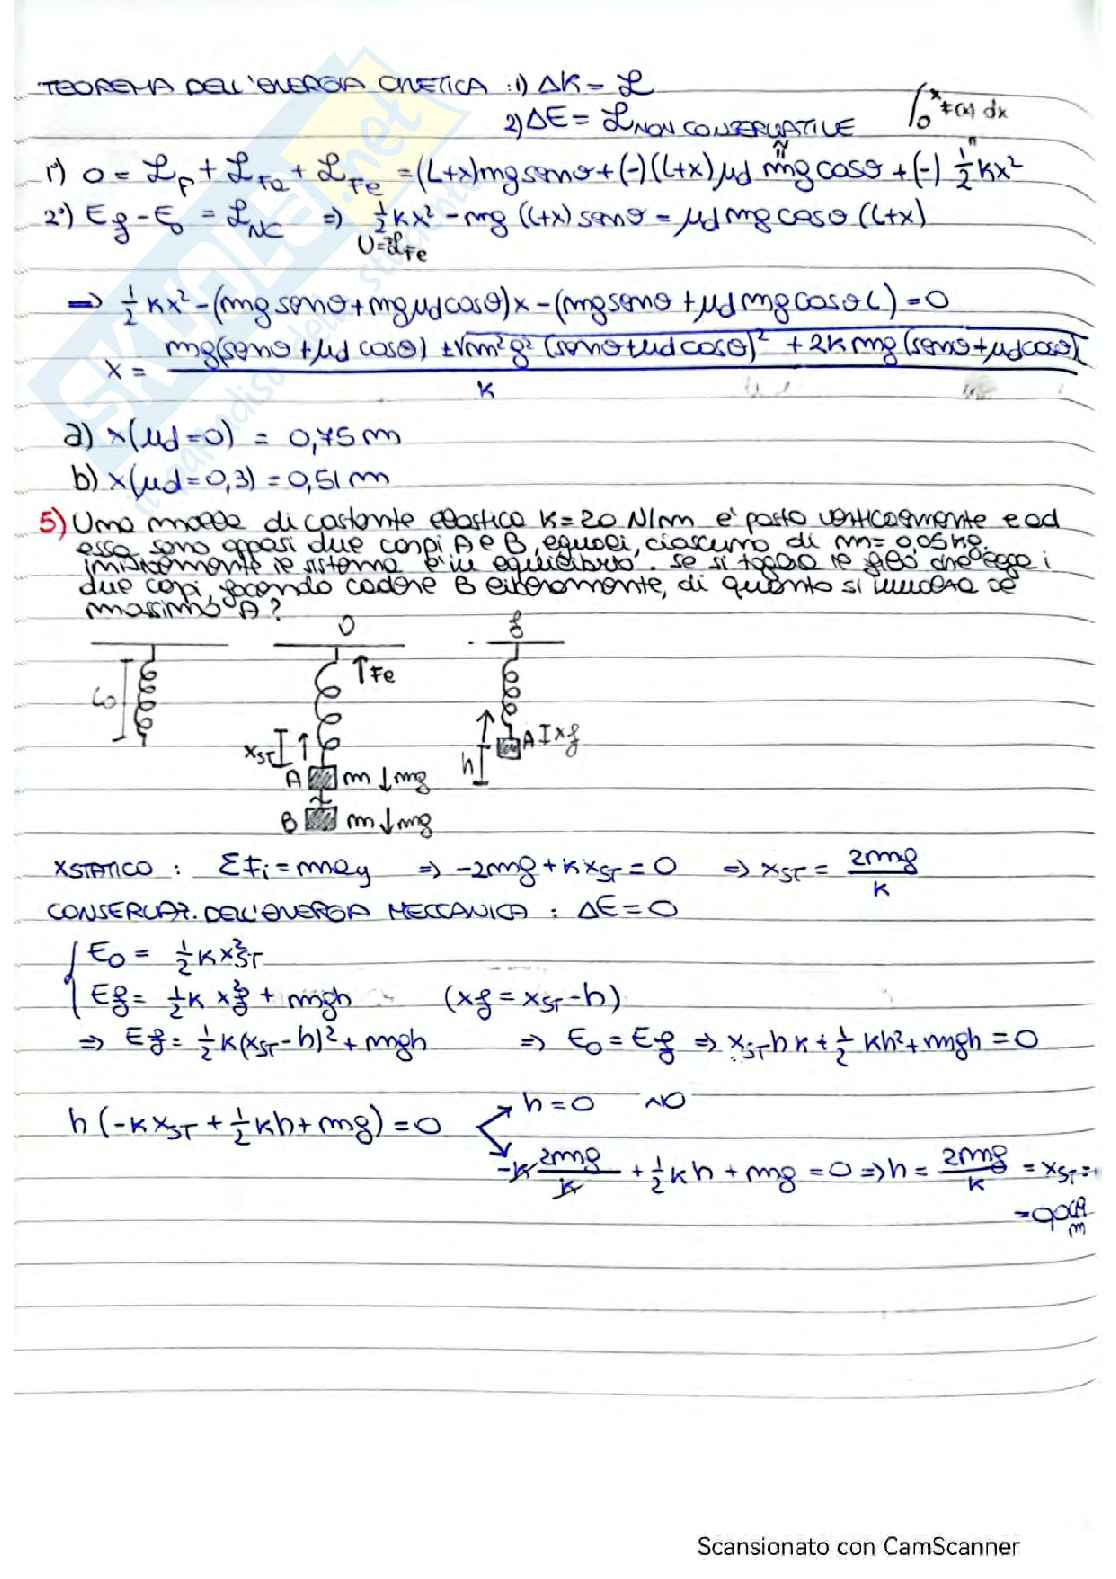 TEOREMA DELL'ENERGIA CINETICA : 1) ΔK = ℒ
2) ΔE = ℒ NON CONSERVATIVE
∫₀ˣ F(x) dx
1°) 0 = ℒ_P + ℒ_Fa + ℒ_Fe = (L+x)mg senθ + (-)(L+x) μd mg cosθ + (-) ½ kx²
N
2°) E_f - E_0 = ℒ_NC ⇒ ½ kx² - mg (L+x) senθ = μd mg cosθ (L+x)
U = ℒ_Fe
⇒ ½ kx² - (mg senθ + mg μd cosθ)x - (mg senθ + μd mg cosθ L) = 0
x = mg(senθ + μd cosθ) ± √m²g² (senθ + μd cosθ)² + 2k mg (senθ + μd cosθ) / k
a) x(μd=0) = 0,75 m
b) x(μd=0,3) = 0,51 m
5) Una molla di costante elastica K = 20 N/m è posta verticalmente e ad
essa sono appesi due corpi A e B, eguali, ciascuno di m = 0.05 kg.
Inizialmente il sistema è in equilibrio. Se si taglia il filo che lega i
due corpi, facendo cadere B liberamente, di quanto si innalza al
massimo A?
0 f
L₀ ↑Fe
x_ST ↑ ↑ A x_f
A m ↓mg h
B m ↓mg
X STATICO : ΣFi = may ⇒ -2mg + k x_ST = 0 ⇒ x_ST = 2mg / k
CONSERVAZ. DELL'ENERGIA MECCANICA : ΔE = 0
E_0 = ½ k x²_ST
E_f = ½ k x²_f + mgh (x_f = x_ST - h)
⇒ E_f = ½ k(x_ST - h)² + mgh ⇒ E_0 = E_f ⇒ x_ST h k + ½ kh² + mgh = 0
h (-k x_ST + ½ kh + mg) = 0 h = 0 NO
-k 2mg / k + ½ kh + mg = 0 ⇒ h = 2mg / k = x_ST =
m
Scansionato con CamScanner
SKUOLA.net